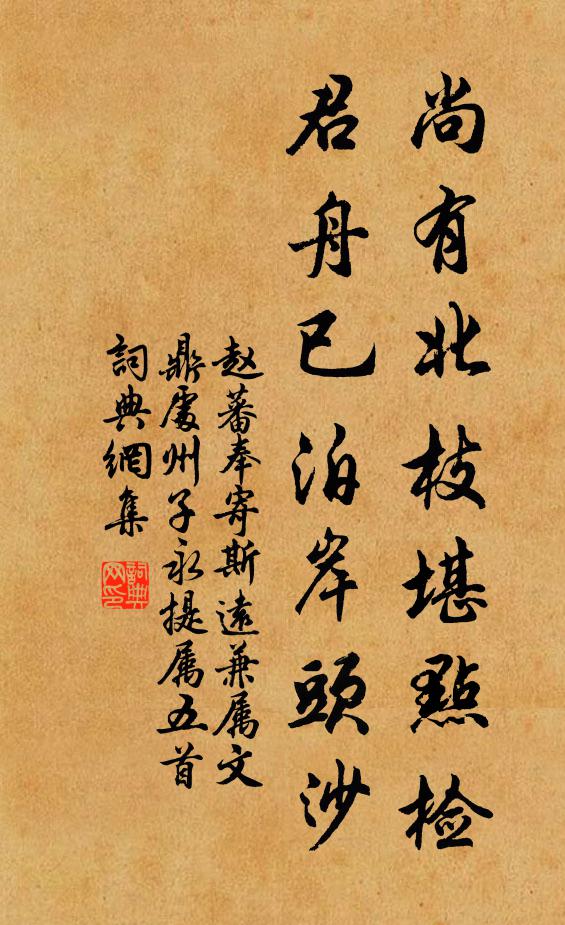 尚有北枝堪點檢
君舟已泊岸頭沙
赵蕃奉寄斯遠兼属文
鼎處州子永提属五首
詞典網集
詞典網印